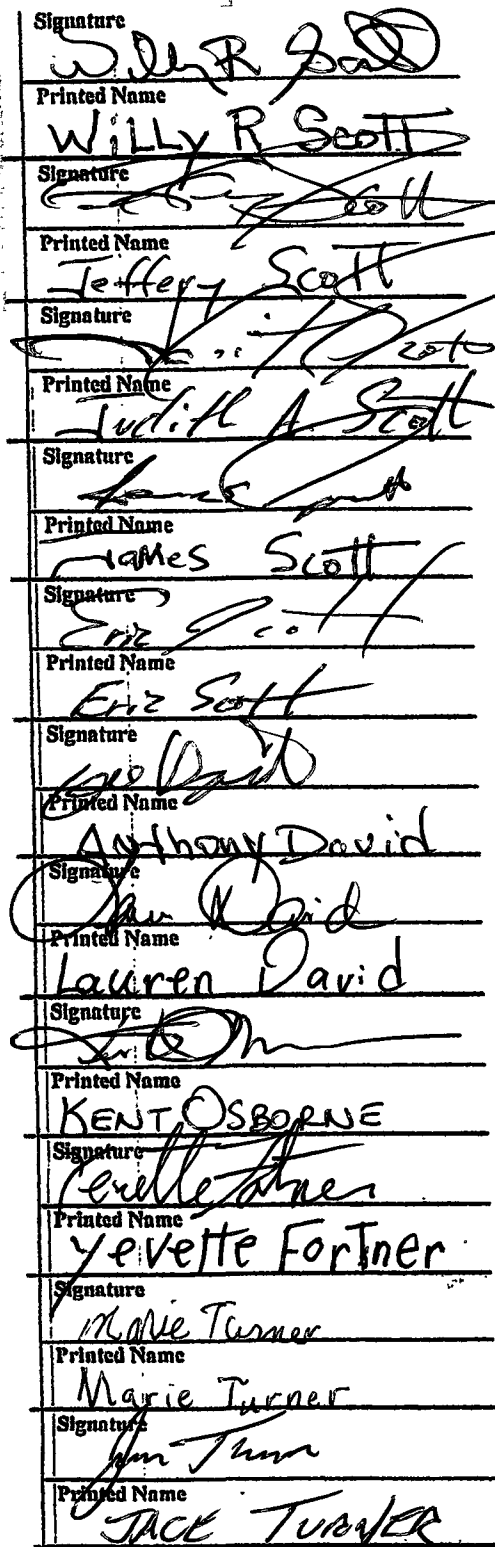 Signature
Willy R Scott
Printed Name
Willy R Scott
Signature
Scott
Printed Name
Jeffery Scott
Signature
Printed Name
Judith A. Scott
Signature
Printed Name
James Scott
Signature
Eric Scott
Printed Name
Eric Scott
Signature
David
Printed Name
Anthony David
Signature
David
Printed Name
Lauren David
Signature
Printed Name
KENT OSBORNE
Signature
Printed Name
Yevette Fortner
Signature
Marie Turner
Printed Name
Marie Turner
Signature
Printed Name
JACK TURNER